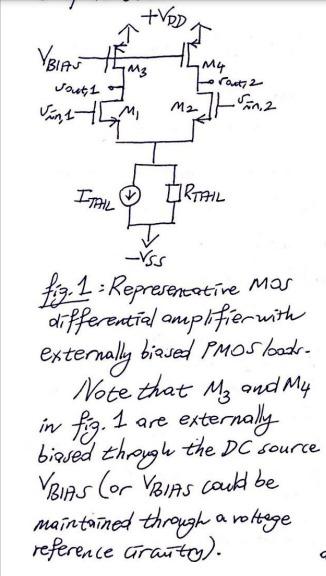 +VDD
VBIAS
M3
M4
vout,1
vout,2
vin,1
M1
M2
vin,2
ITAIL
RTAIL
-VSS
fig. 1 : Representative MOS
differential amplifier with
externally biased PMOS loads.
Note that M3 and M4
in fig. 1 are externally
biased through the DC source
VBIAS (or VBIAS could be
maintained through a voltage
reference circuitry).